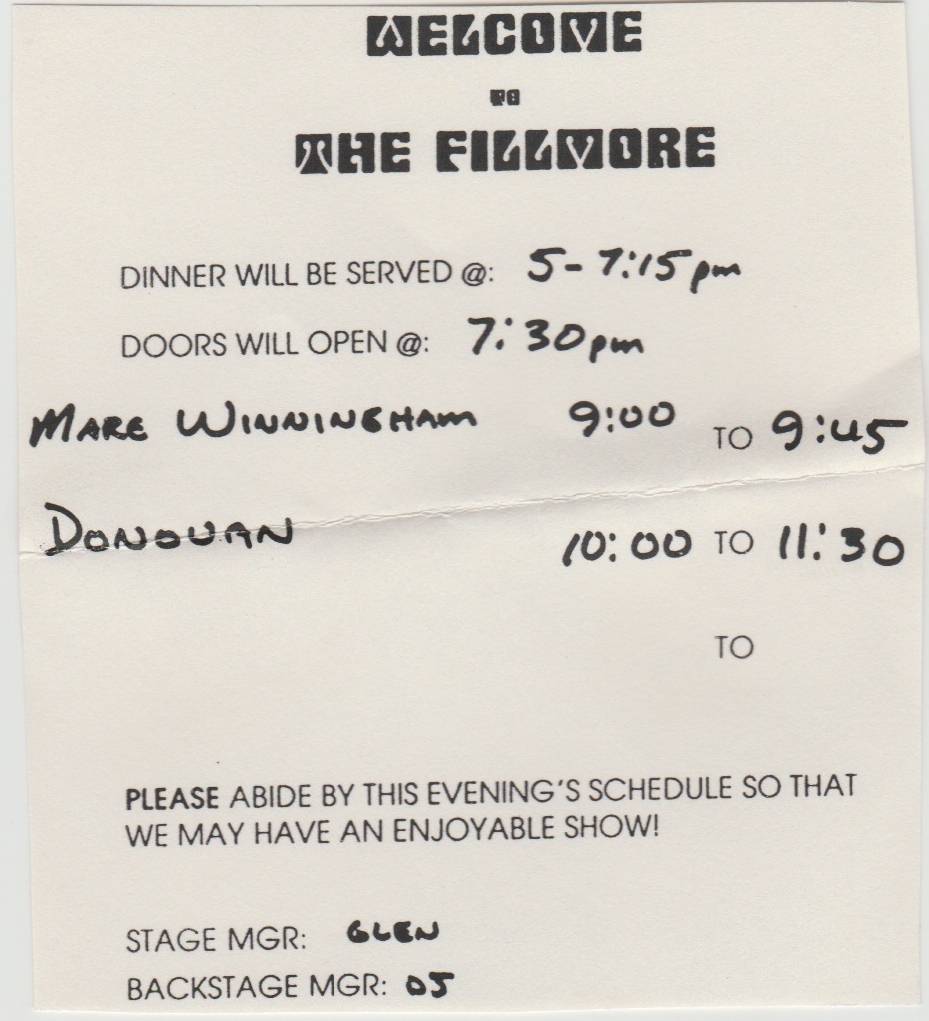 WELCOME
TO
THE FILLMORE
DINNER WILL BE SERVED @: 5-7:15pm
DOORS WILL OPEN @: 7:30pm
MARE WINNINGHAM 9:00 TO 9:45
DONOVAN 10:00 TO 11:30
TO
PLEASE ABIDE BY THIS EVENING'S SCHEDULE SO THAT
WE MAY HAVE AN ENJOYABLE SHOW!
STAGE MGR: GLEN
BACKSTAGE MGR: